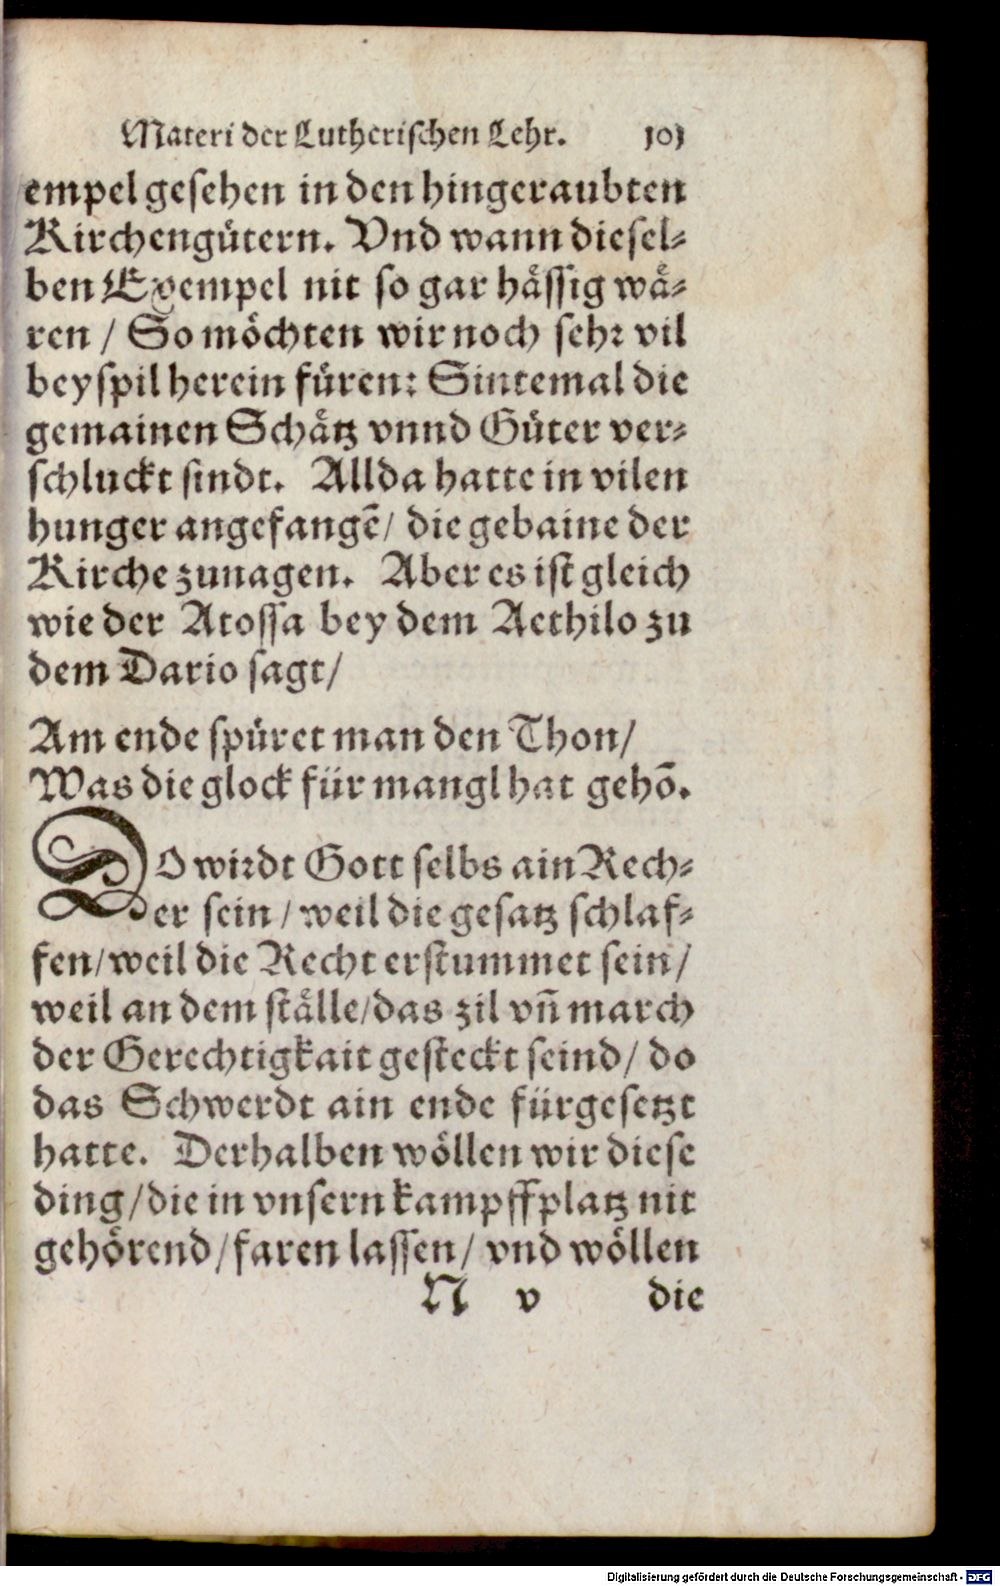 Materi der Lutherischen Lehr. 101
empel gesehen in den hingeraubten
Kirchengütern. Vnd wann diesel-
ben Exempel nit so gar hässig wä-
ren / So möchten wir noch sehr vil
beyspil herein füren: Sintemal die
gemainen Schätz vnnd Güter ver-
schluckt sindt. Allda hatte in vilen
hunger angefangē/ die gebaine der
Kirche zunagen. Aber es ist gleich
wie der Atossa bey dem Aethilo zu
dem Dario sagt/
Am ende spüret man den Thon/
Was die glock für mangl hat gehō.
DO wirdt Gott selbs ain Rech-
er sein / weil die gesatz schlaf-
fen/weil die Recht erstummet sein/
weil an dem ställe/das zil vn̄ march
der Gerechtigkait gesteckt seind/ do
das Schwerdt ain ende fürgesetzt
hatte. Derhalben wöllen wir diese
ding/die in vnsern kampffplatz nit
gehörend/faren lassen/ vnd wöllen
N v die
Digitalisierung gefördert durch die Deutsche Forschungsgemeinschaft - DFG